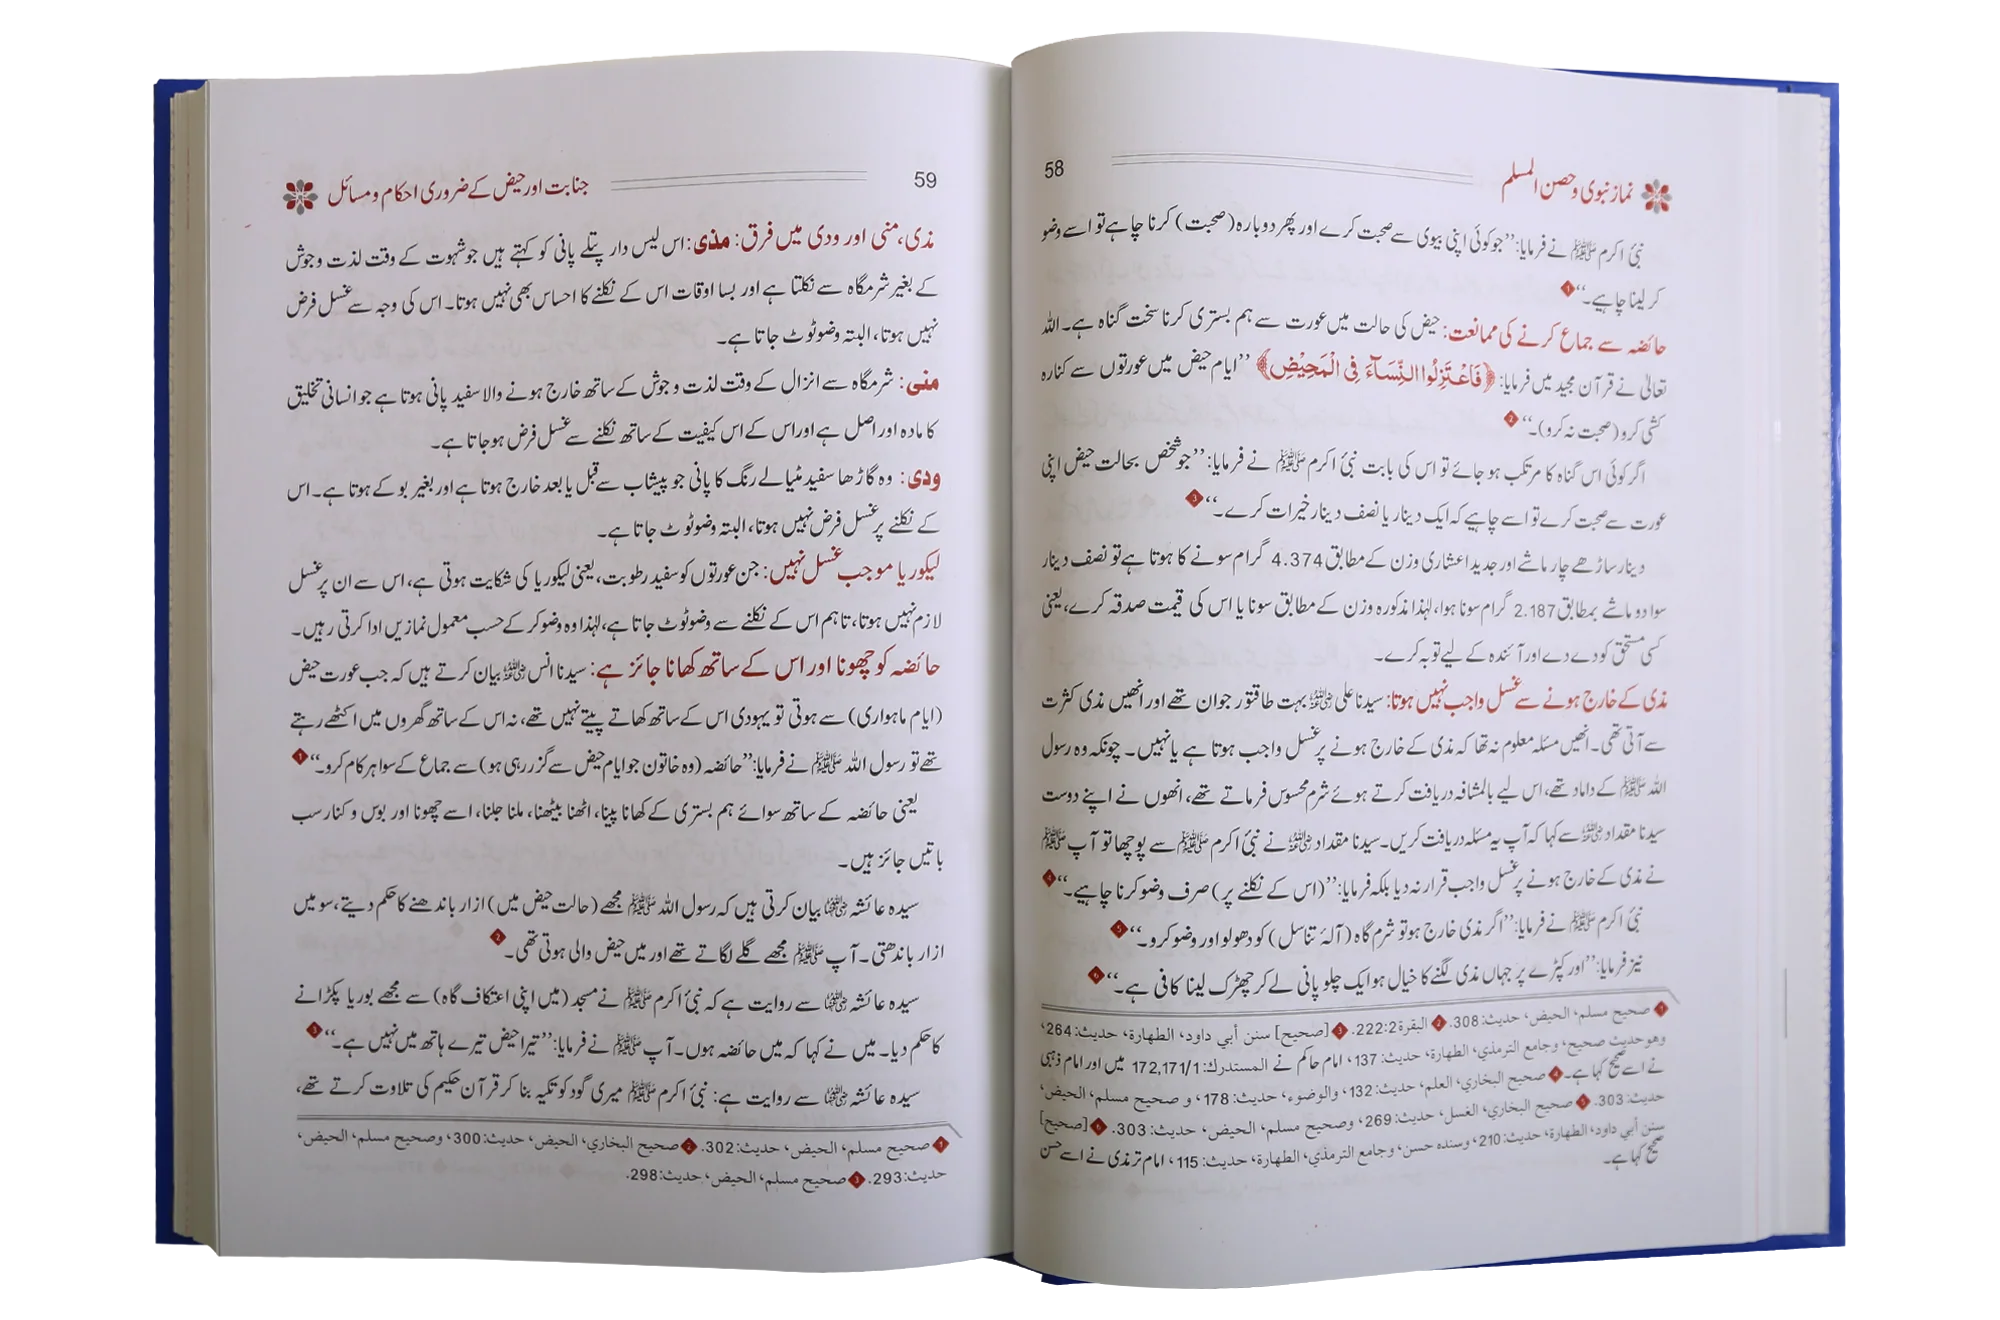 نماز نبوی و حصن المسلم 58
نبیٔ اکرم ﷺ نے فرمایا: ’’جو کوئی اپنی بیوی سے صحبت کرے اور پھر دوبارہ (صحبت) کرنا چاہے تو اسے وضو
کر لینا چاہیے۔‘‘ 1
حائضہ سے جماع کرنے کی ممانعت: حیض کی حالت میں عورت سے ہم بستری کرنا سخت گناہ ہے۔ اللہ
تعالیٰ نے قرآن مجید میں فرمایا: ﴿فَاعْتَزِلُوا النِّسَآءَ فِی الْمَحِیْضِ﴾ ’’ایام حیض میں عورتوں سے کنارہ
کشی کرو (صحبت نہ کرو)۔‘‘ 2
اگر کوئی اس گناہ کا مرتکب ہو جائے تو اس کی بابت نبیٔ اکرم ﷺ نے فرمایا: ’’جو شخص بحالت حیض اپنی
عورت سے صحبت کرے تو اسے چاہیے کہ ایک دینار یا نصف دینار خیرات کرے۔‘‘ 3
دینار ساڑھے چار ماشے اور جدید اعشاری وزن کے مطابق 4.374 گرام سونے کا ہوتا ہے تو نصف دینار
سوا دو ماشے بمطابق 2.187 گرام سونا ہوا، لہٰذا مذکورہ وزن کے مطابق سونا یا اس کی قیمت صدقہ کرے، یعنی
کسی مستحق کو دے دے اور آئندہ کے لیے توبہ کرے۔
مذی کے خارج ہونے سے غسل واجب نہیں ہوتا: سیدنا علی رضی اللہ عنہ بہت طاقتور جوان تھے اور انھیں مذی کثرت
سے آتی تھی۔ انھیں مسئلہ معلوم نہ تھا کہ مذی کے خارج ہونے پر غسل واجب ہوتا ہے یا نہیں۔ چونکہ وہ رسول
اللہ ﷺ کے داماد تھے، اس لیے بالمشافہ دریافت کرتے ہوئے شرم محسوس فرماتے تھے، انھوں نے اپنے دوست
سیدنا مقداد رضی اللہ عنہ سے کہا کہ آپ یہ مسئلہ دریافت کریں۔ سیدنا مقداد رضی اللہ عنہ نے نبیٔ اکرم ﷺ سے پوچھا تو آپ ﷺ
نے مذی کے خارج ہونے پر غسل واجب قرار نہ دیا بلکہ فرمایا: ’’(اس کے نکلنے پر) صرف وضو کرنا چاہیے۔‘‘ 4
نبیٔ اکرم ﷺ نے فرمایا: ’’اگر مذی خارج ہو تو شرم گاہ (آلۂ تناسل) کو دھو لو اور وضو کرو۔‘‘ 5
نیز فرمایا: ’’اور کپڑے پر جہاں مذی لگنے کا خیال ہو ایک چلو پانی لے کر چھڑک لینا کافی ہے۔‘‘ 6
1 صحيح مسلم، الحيض، حديث: 308. 2 البقرة 222:2. 3 [صحيح] سنن أبي داود، الطهارة، حديث: 264،
وهو حديث صحيح، وجامع الترمذي، الطهارة، حديث: 137، امام حاکم نے المستدرك: 172,171/1 میں اور امام ذہبی
نے اسے صحیح کہا ہے۔ 4 صحيح البخاري، العلم، حديث: 132، والوضوء، حديث: 178، و صحيح مسلم، الحيض،
حديث: 303. 5 صحيح البخاري، الغسل، حديث: 269، وصحيح مسلم، الحيض، حديث: 303. 6 [صحيح]
سنن أبي داود، الطهارة، حديث: 210، وسنده حسن، وجامع الترمذي، الطهارة، حديث: 115، امام ترمذی نے اسے حسن
صحیح کہا ہے۔
59 جنابت اور حیض کے ضروری احکام و مسائل
مذی، منی اور ودی میں فرق: مذی: اس لیس دار پتلے پانی کو کہتے ہیں جو شہوت کے وقت لذت و جوش
کے بغیر شرمگاہ سے نکلتا ہے اور بسا اوقات اس کے نکلنے کا احساس بھی نہیں ہوتا۔ اس کی وجہ سے غسل فرض
نہیں ہوتا، البتہ وضو ٹوٹ جاتا ہے۔
منی: شرمگاہ سے انزال کے وقت لذت و جوش کے ساتھ خارج ہونے والا سفید پانی ہوتا ہے جو انسانی تخلیق
کا مادہ اور اصل ہے اور اس کے اس کیفیت کے ساتھ نکلنے سے غسل فرض ہو جاتا ہے۔
ودی: وہ گاڑھا سفید مٹیالے رنگ کا پانی جو پیشاب سے قبل یا بعد خارج ہوتا ہے اور بغیر بو کے ہوتا ہے۔ اس
کے نکلنے پر غسل فرض نہیں ہوتا، البتہ وضو ٹوٹ جاتا ہے۔
لیکوریا موجب غسل نہیں: جن عورتوں کو سفید رطوبت، یعنی لیکوریا کی شکایت ہوتی ہے، اس سے ان پر غسل
لازم نہیں ہوتا، تاہم اس کے نکلنے سے وضو ٹوٹ جاتا ہے، لہٰذا وہ وضو کر کے حسب معمول نمازیں ادا کرتی رہیں۔
حائضہ کو چھونا اور اس کے ساتھ کھانا جائز ہے: سیدنا انس رضی اللہ عنہ بیان کرتے ہیں کہ جب عورت حیض
(ایام ماہواری) سے ہوتی تو یہودی اس کے ساتھ کھاتے پیتے نہیں تھے، نہ اس کے ساتھ گھروں میں اکٹھے رہتے
تھے تو رسول اللہ ﷺ نے فرمایا: ’’حائضہ (وہ خاتون جو ایام حیض سے گزر رہی ہو) سے جماع کے سوا ہر کام کرو۔‘‘ 1
یعنی حائضہ کے ساتھ سوائے ہم بستری کے کھانا پینا، اٹھنا بیٹھنا، ملنا جلنا، اسے چھونا اور بوس و کنار سب
باتیں جائز ہیں۔
سیدہ عائشہ رضی اللہ عنہا بیان کرتی ہیں کہ رسول اللہ ﷺ مجھے (حالت حیض میں) ازار باندھنے کا حکم دیتے، سو میں
ازار باندھتی۔ آپ ﷺ مجھے گلے لگاتے تھے اور میں حیض والی ہوتی تھی۔ 2
سیدہ عائشہ رضی اللہ عنہا سے روایت ہے کہ نبیٔ اکرم ﷺ نے مسجد (میں اپنی اعتکاف گاہ) سے مجھے بوریا پکڑانے
کا حکم دیا۔ میں نے کہا کہ میں حائضہ ہوں۔ آپ ﷺ نے فرمایا: ’’تیرا حیض تیرے ہاتھ میں نہیں ہے۔‘‘ 3
سیدہ عائشہ رضی اللہ عنہا سے روایت ہے: نبیٔ اکرم ﷺ میری گود کو تکیہ بنا کر قرآن حکیم کی تلاوت کرتے تھے،
1 صحيح مسلم، الحيض، حديث: 302. 2 صحيح البخاري، الحيض، حديث: 300، وصحيح مسلم، الحيض،
حديث: 293. 3 صحيح مسلم، الحيض، حديث: 298.